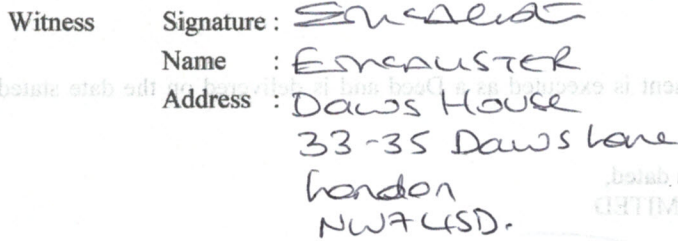 Witness Signature :
Name : E MCALISTER
Address : Daws House
33-35 Daws Lane
London
NW7 4SD.